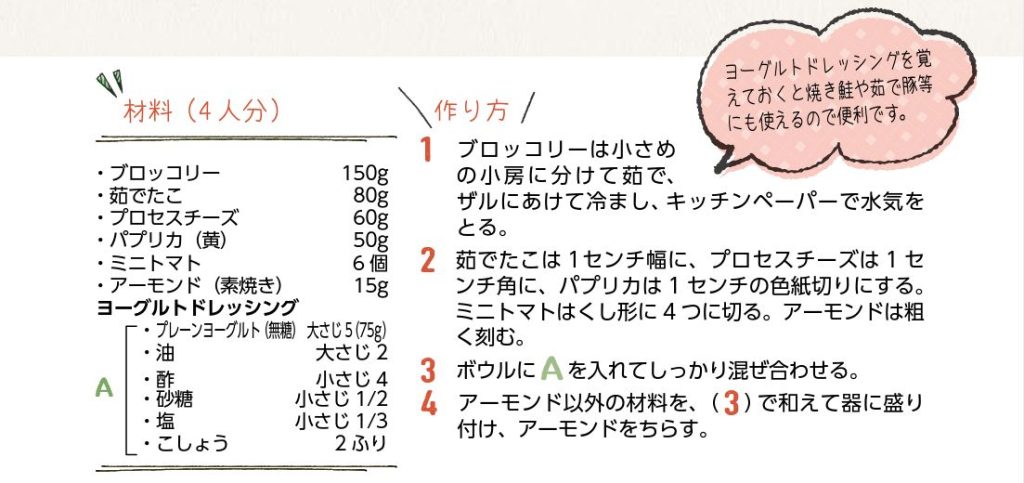 材料（4人分）
・ブロッコリー 150g
・茹でたこ 80g
・プロセスチーズ 60g
・パプリカ（黄） 50g
・ミニトマト 6個
・アーモンド（素焼き） 15g
ヨーグルトドレッシング
A
・プレーンヨーグルト（無糖） 大さじ5（75g）
・油 大さじ2
・酢 小さじ4
・砂糖 小さじ1/2
・塩 小さじ1/3
・こしょう 2ふり
作り方
1 ブロッコリーは小さめ
の小房に分けて茹で、
ザルにあけて冷まし、キッチンペーパーで水気を
とる。
2 茹でたこは1センチ幅に、プロセスチーズは1セ
ンチ角に、パプリカは1センチの色紙切りにする。
ミニトマトはくし形に4つに切る。アーモンドは粗
く刻む。
3 ボウルにAを入れてしっかり混ぜ合わせる。
4 アーモンド以外の材料を、（3）で和えて器に盛り
付け、アーモンドをちらす。
ヨーグルトドレッシングを覚
えておくと焼き鮭や茹で豚等
にも使えるので便利です。